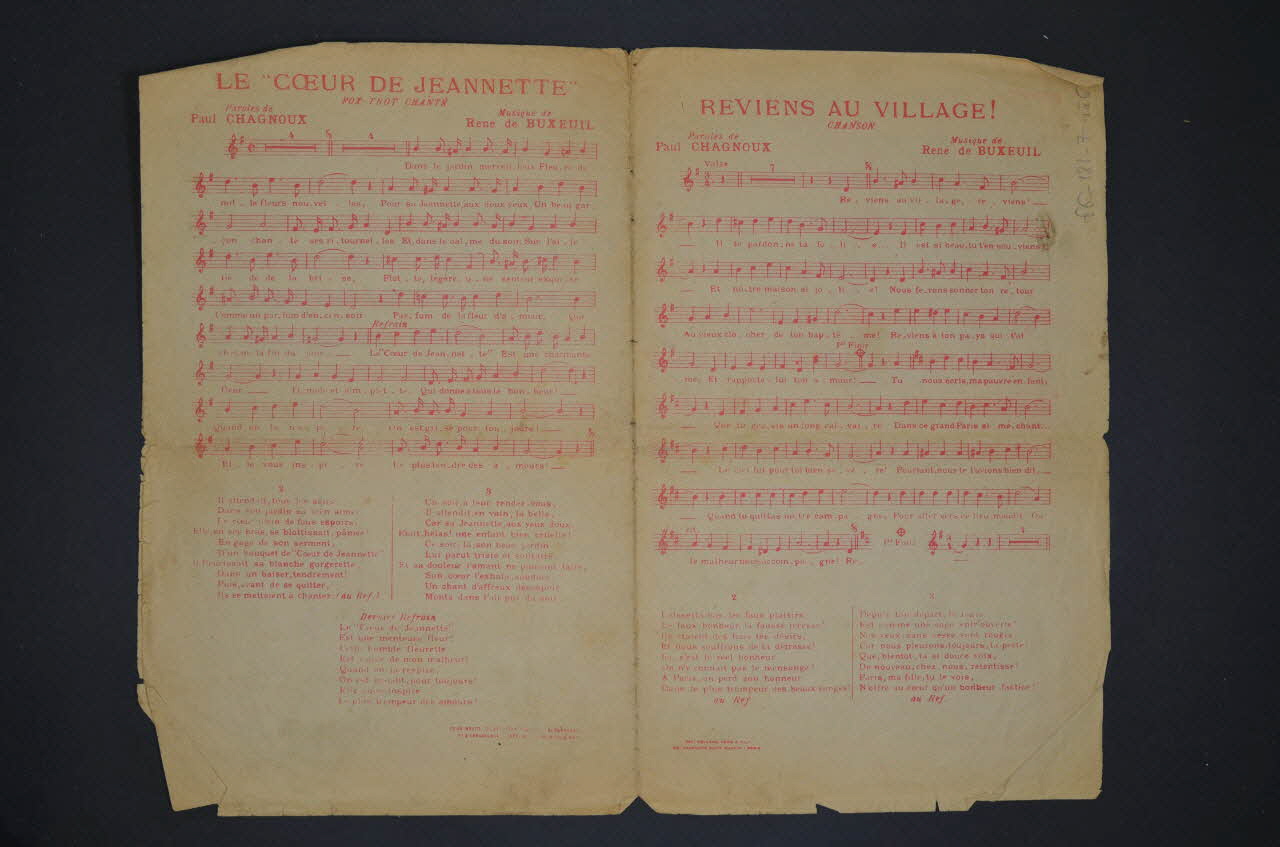 LE "CŒUR DE JEANNETTE"
FOX-TROT CHANTÉ
Paroles de
Paul CHAGNOUX
Musique de
René de BUXEUIL
4 4
Dans le jardin merveil_leux Fleu_ri de
mil_le fleurs nou_vel_les, Pour sa Jeannette, aux doux yeux, Un beau gar_
_çon chan_te ses ri_tournel_les Et, dans le cal_me du soir, Sur l'ai_le
tiè_de de la bri_se, Flot_te, légère, u_ne senteur exqui_se
Comme un par_fum d'en_cen_soir Par_fum de la fleur d'a_mour, Que
Refrain
chacun la fin du jour. Le "Cœur de Jean_net_te" Est une charmante
fleur Qui donne à tous le bon_heur!
Quand on l'a res_pi_ré_e, On est gri_sé pour tou_jours!
Et le vous ins_pi_re Le plus ten_dre des a_mours!
2
Il attendait, tous les soirs
Dans son jardin sa bien aimée
Le cœur plein de fous espoirs;
Elle, en ses bras, se blottissait, pâmée!
En gage de son serment,
D'un bouquet de "Cœur de Jeannette"
Il fleurissait sa blanche gorgerette
Dans un baiser, tendrement!
Puis, avant de se quitter,
Ils se mettaient à chanter: (au Ref.)
3
Un soir, à leur rendez-vous,
Il attendit en vain, la belle,
Car sa Jeannette, aux yeux doux,
Etait, hélas! une enfant bien cruelle!
Ce soir-là, son beau jardin
Lui parut triste et solitaire
Et sa douleur l'amant ne pouvant taire,
Son cœur l'exhala, soudain
Un chant d'affreux désespoir
Monta dans l'air pur du soir
Dernier Refrain
Le "Cœur de Jeannette"
Est une menteuse fleur!
Cette humble fleurette
Est cause de mon malheur!
Quand on la respire,
On est grisé, pour toujours!
Elle vous inspire
Le plus trompeur des amours!
REVIENS AU VILLAGE!
CHANSON
Paroles de
Paul CHAGNOUX
Musique de
René de BUXEUIL
Valse
7
Re_viens au vil_la_ge, re_viens!
Il te pardon_ne ta fo_li_e... Il est si beau, t'en sou_viens,
Et no_tre maison si jo_li_e! Nous fe_rons sonner ton re_tour
Au vieux clo_cher de ton bap_tê_me! Re_viens à ton pa_ys qui t'ai_
Pr Finir
me, Et rapporte_lui ton a_mour! Tu nous écris, ma pauvre en_fant,
Que tu gra_vis un long cal_vai_re Dans ce grand Paris si mé_chant.
Le ciel fut pour toi bien sé_vè_re! Pourtant, nous te l'avions bien dit,
Quand tu quittas no_tre cam_pa_gne, Pour aller vers ce lieu maudit Où
le malheur nous accom_pa_gne! Re_
Pr Finir
4
2
Laisse-là, va, tes faux plaisirs
Le faux bonheur, la fausse ivresse!
Ils étaient des fous tes désirs,
Et nous souffrons de ta détresse!
Ici, c'est le réel bonheur
On n'y connaît pas le mensonge!
A Paris, on perd son honneur
Dans le plus trompeur des beaux songes!
au Ref
3
Depuis ton départ, la route
Nos yeux sans cesse sont rougis
Car nous pleurons, toujours, ta perte!
Que, bientôt, ta si douce voix,
De nouveau, chez nous, retentisse!
Paris, ma fille, tu le vois,
N'offre au cœur qu'un bonheur factice!
au Ref.